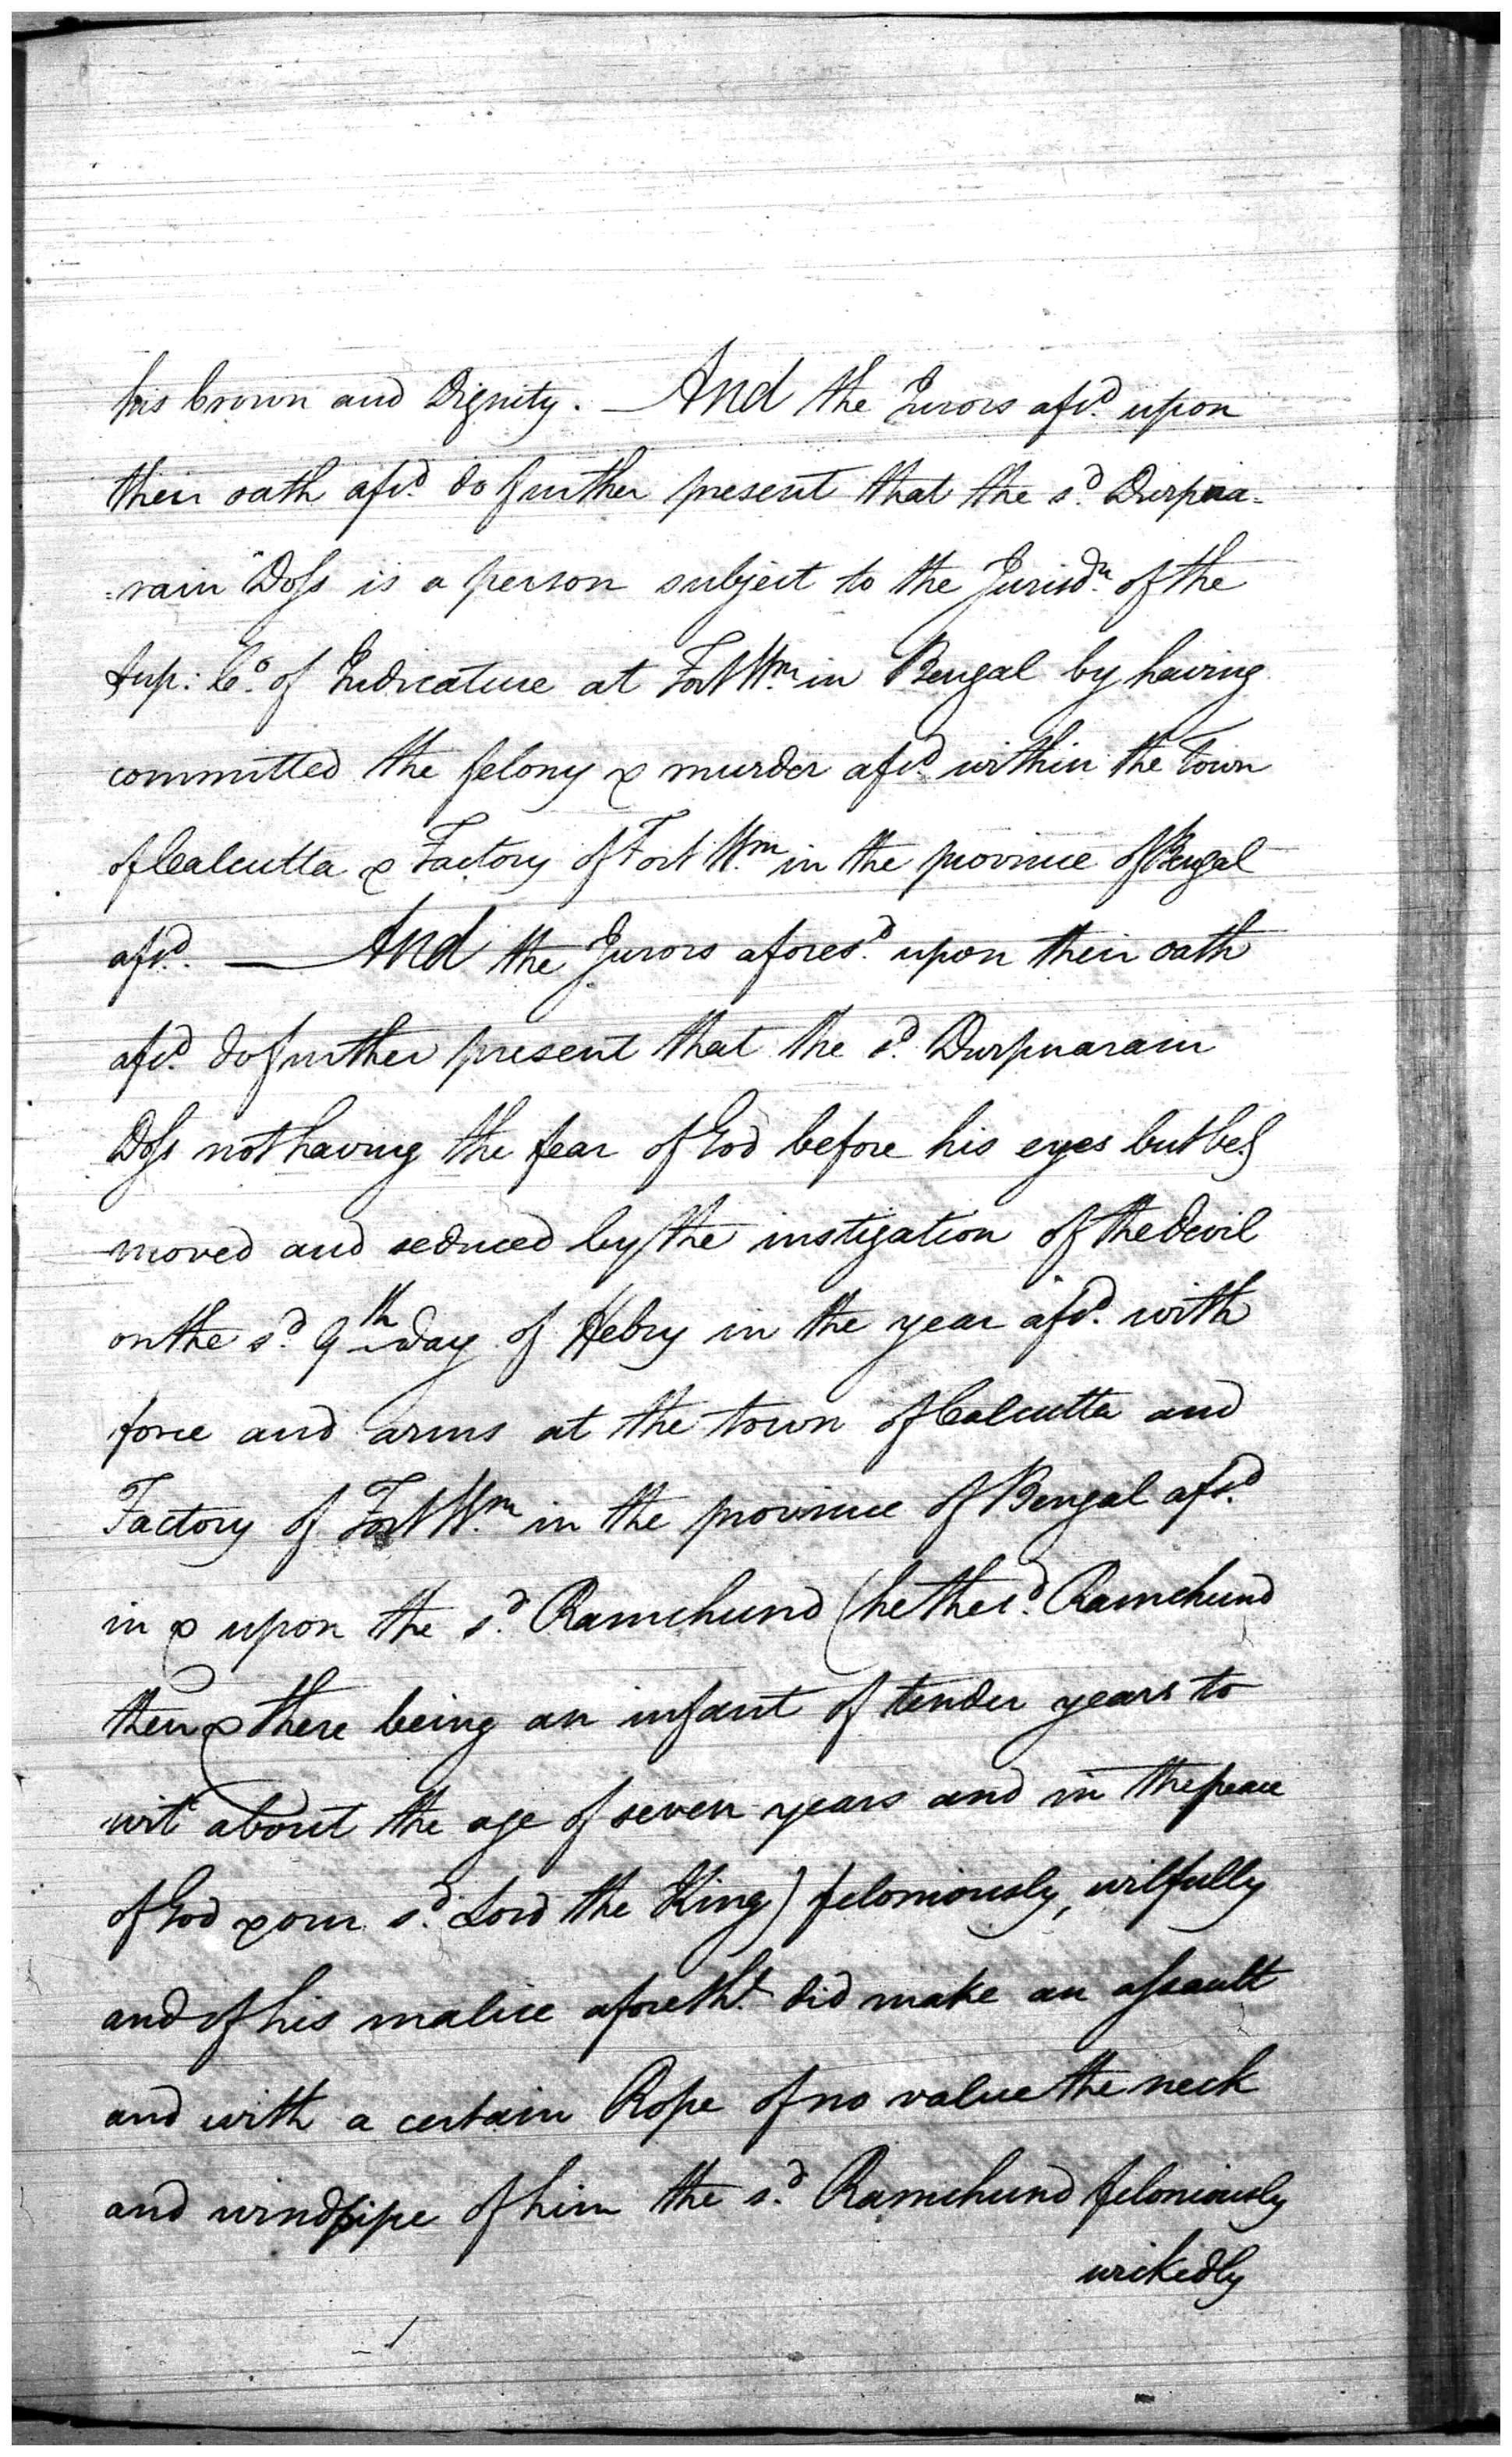 his Crown and Dignity. — And the Jurors afsd. upon
their oath afsd. do further present that the sd. Durpna=
=rain Doss is a person subject to the Jurisdn. of the
Sup: Co. of Judicature at Fort Wm. in Bengal by having
committed the felony & murder afsd. within the Town
of Calcutta & Factory of Fort Wm. in the province of Bengal
afsd. — And the Jurors aforesd. upon their oath
afsd. do further present that the sd. Durpnarain
Doss not having the fear of God before his eyes but beg
moved and seduced by the instigation of the Devil
on the sd. 9th day of Febry in the year afsd. with
force and arms at the town of Calcutta and
Factory of Fort Wm. in the province of Bengal afsd.
in & upon the sd. Ramchund (he the sd. Ramchund
then & there being an infant of tender years to
wit about the age of seven years and in the peace
of God & our sd. Lord the King) feloniously, wilfully
and of his malice aforetht. did make an assault
and with a certain Rope of no value the neck
and windpipe of him the sd. Ramchund feloniously
wickedly